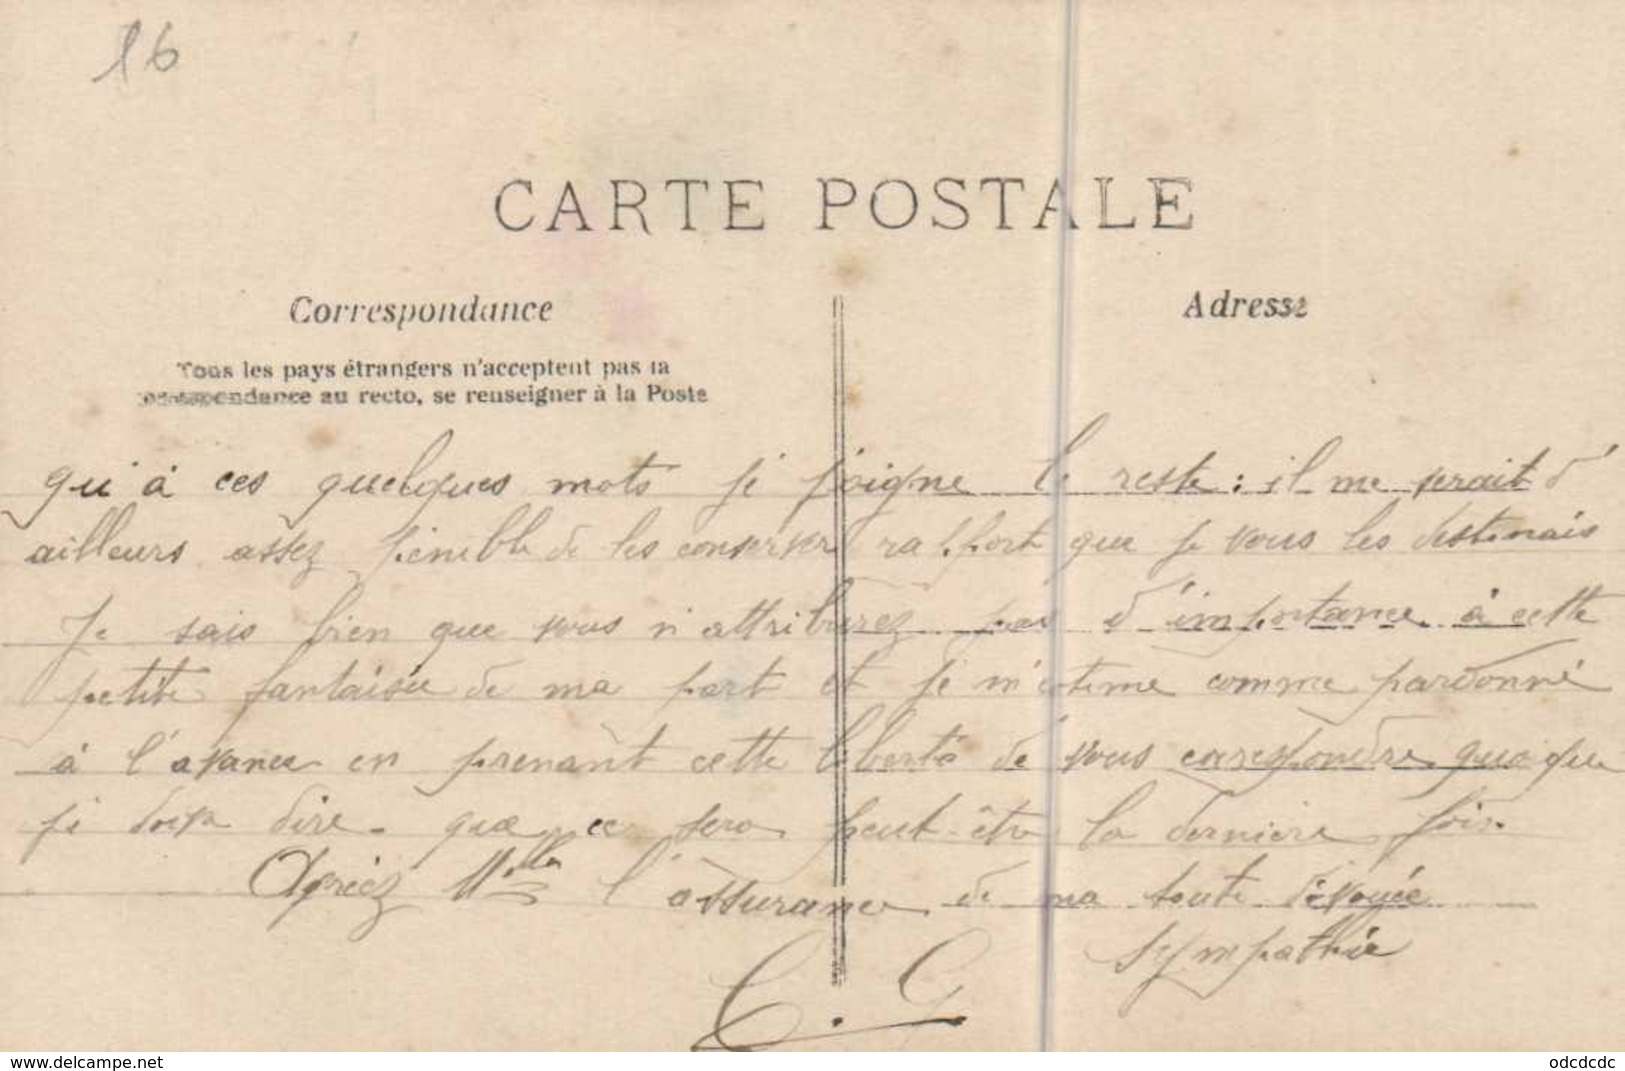 16
CARTE POSTALE
Correspondance
Adresse
Tous les pays étrangers n'acceptent pas la
correspondance au recto, se renseigner à la Poste
qu'à ces quelques mots je joigne le reste : il me serait d'
ailleurs assez pénible de les conserver rapport que je vous les destinais
Je sais bien que vous n'attriburez pas d'importance à cette
petite fantaisie de ma part et je m'estime comme pardonné
à l'avance en prenant cette liberté de vous correspondre quoique
je doive dire que ce sera peut-être la dernière fois.
Agréez Mlle l'assurance de ma toute dévouée
sympathie
C. G
www.delcampe.net
odcdcdc